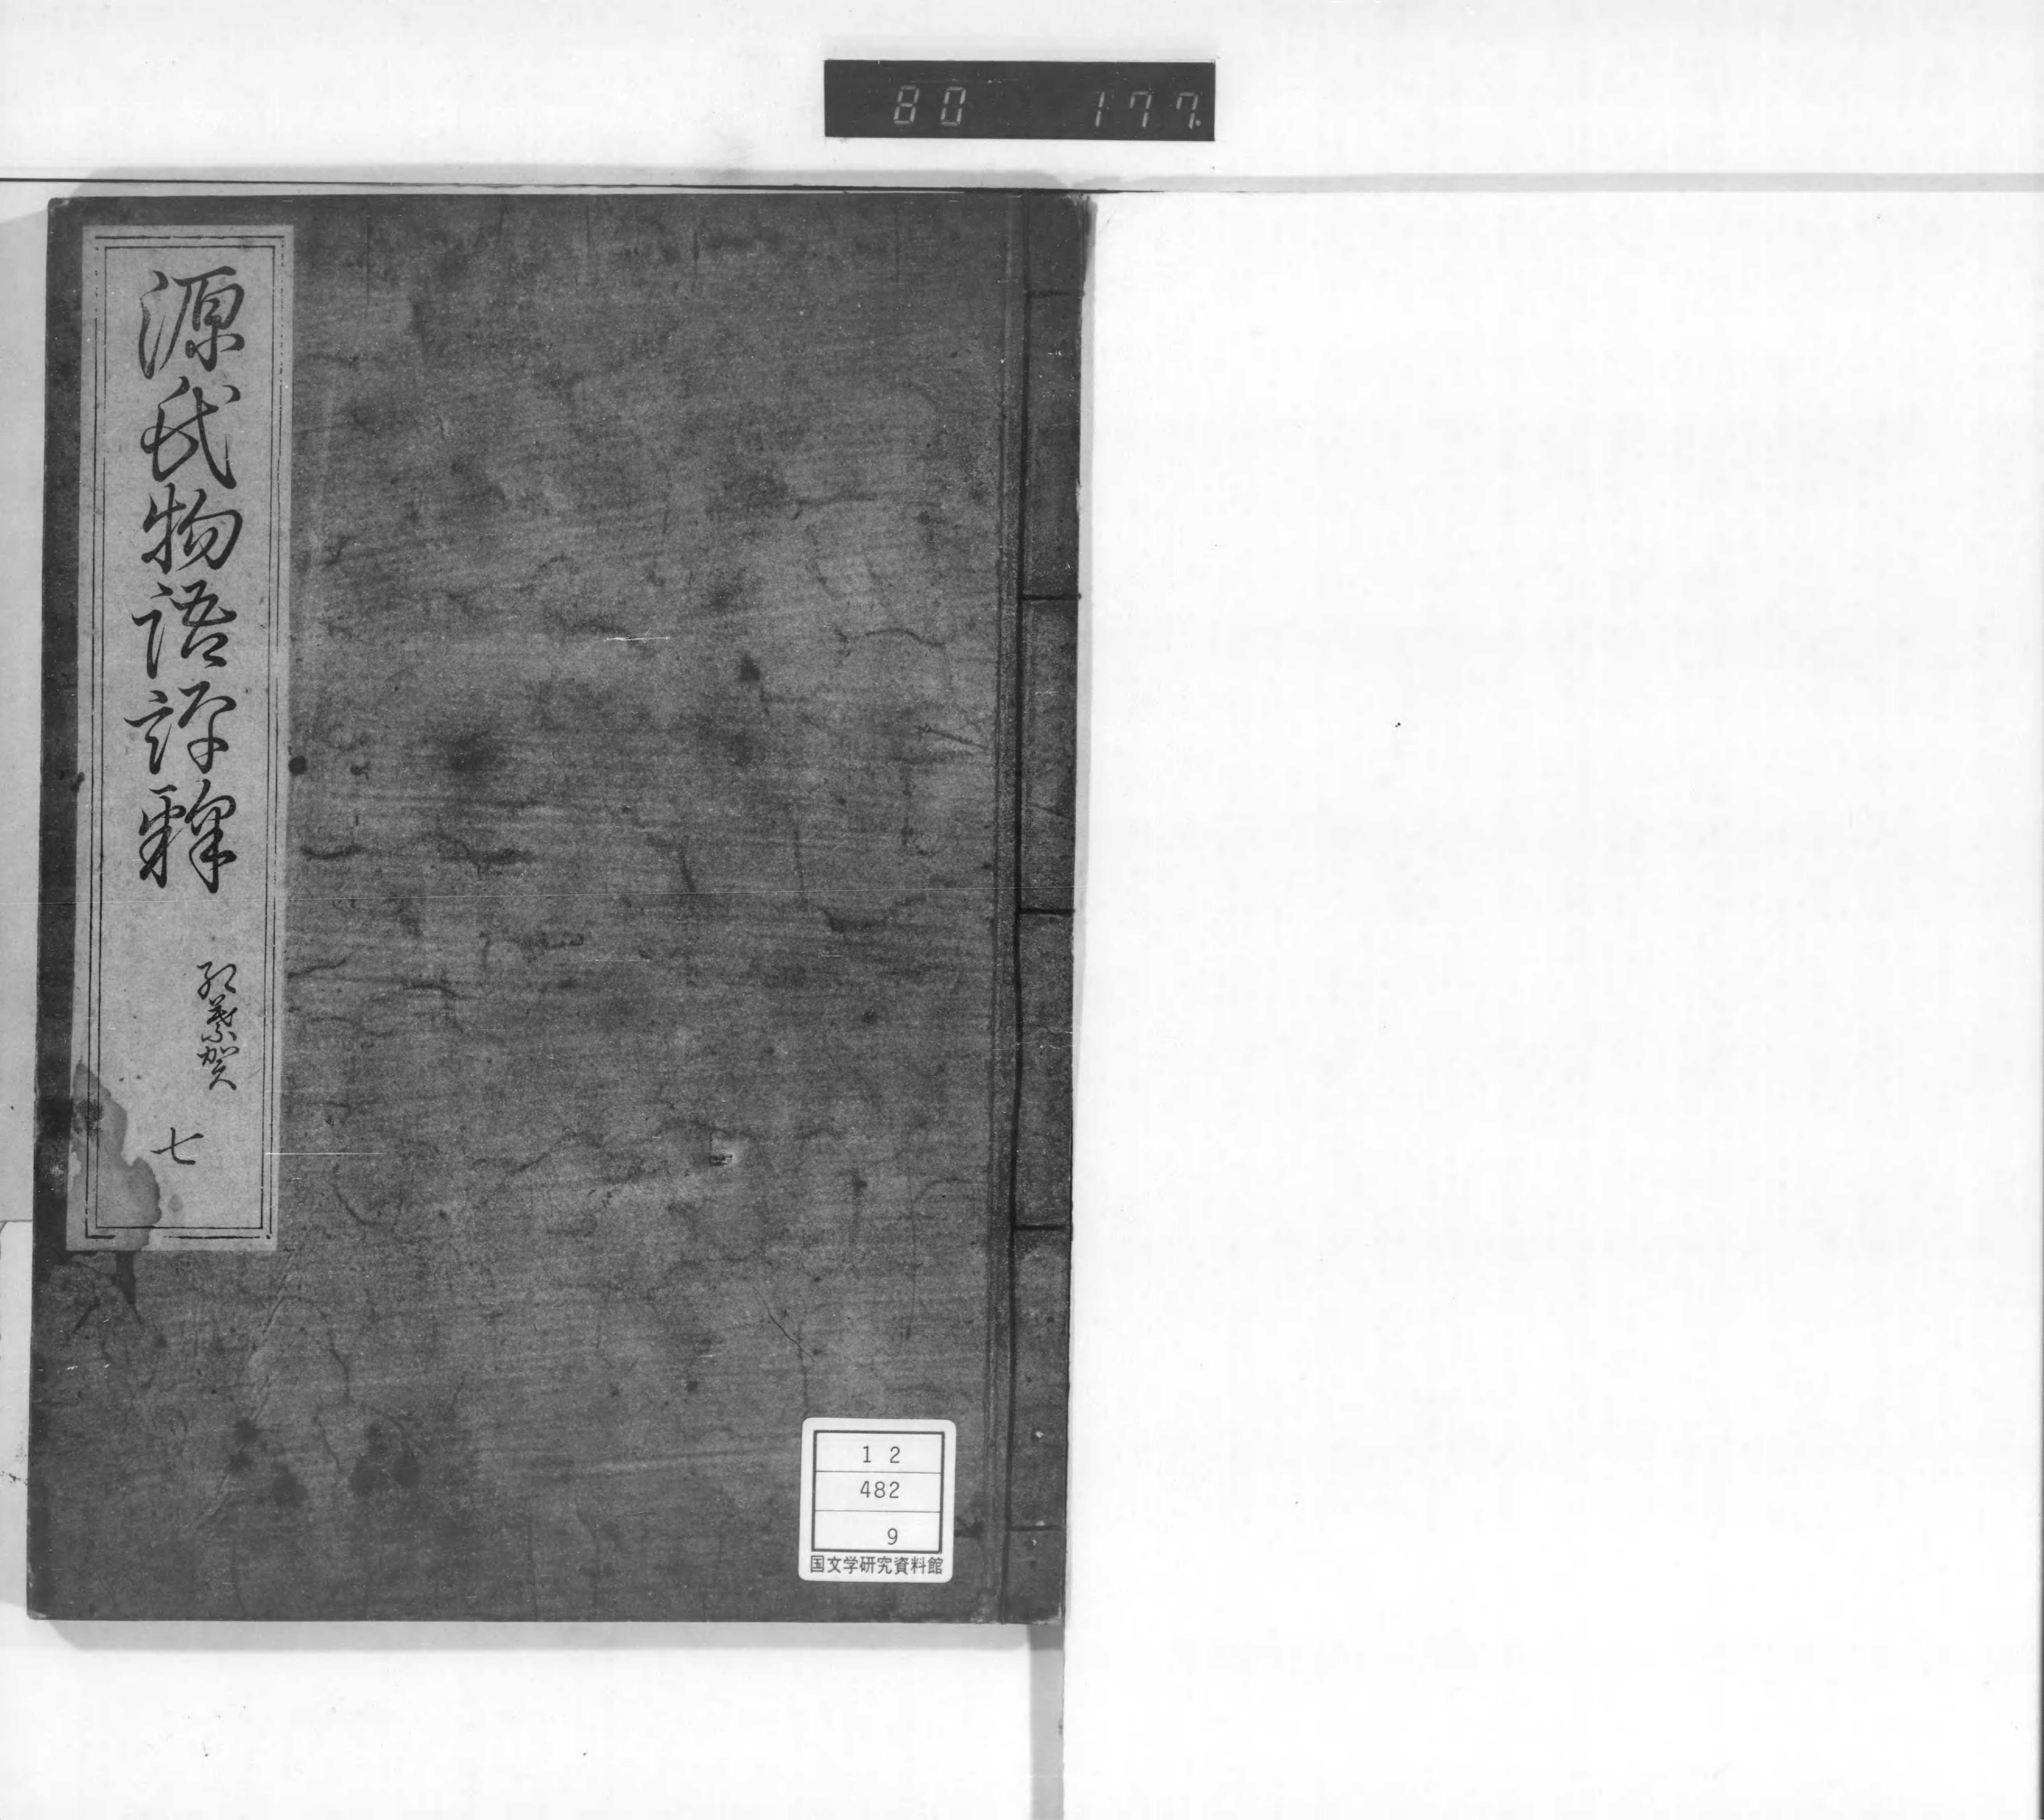 80 177
源氏物語評釋
紅葉賀
七
12
482
9
国文学研究資料館